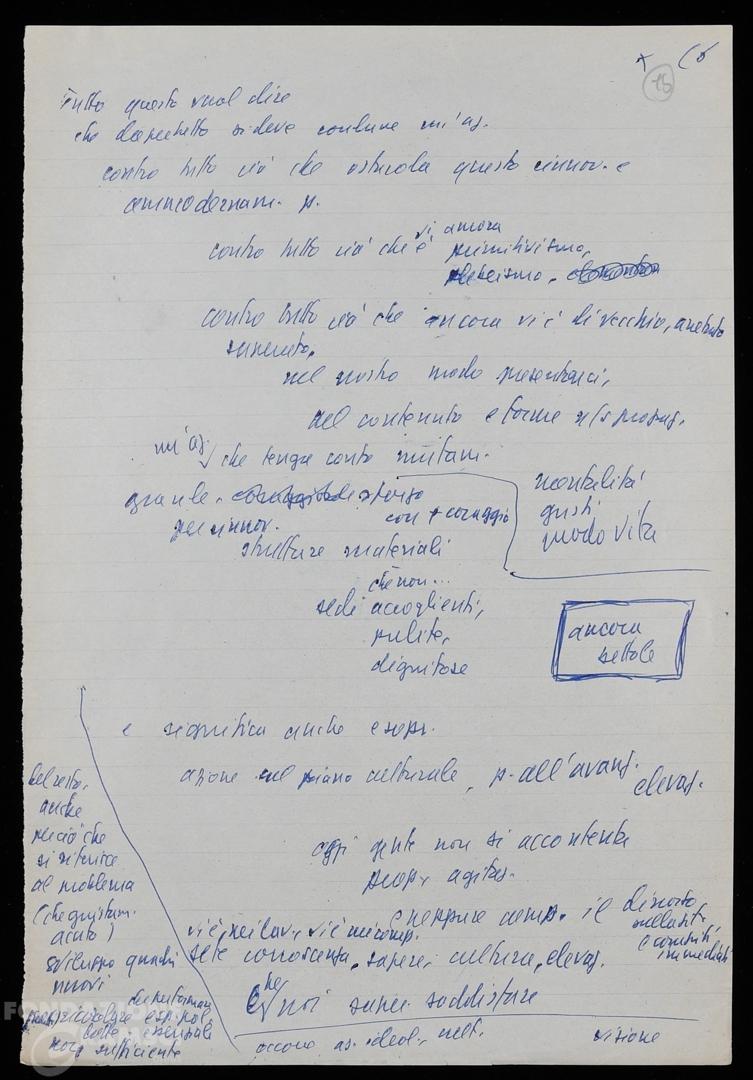 + 15
Tutto questo vuol dire
che dappertutto si deve condurre un'az.
contro tutto ciò che ostacola questo rinnov. e
ammodernam. p.
contro tutto ciò che vi è ancora
primitivismo,
contro tutto ciò che ancora vi è di vecchio, antiquato
superato,
nel nostro modo presentarci,
nel contenuto e forme
un'az. che tenga conto mutam.
mentalità
gusti
modo vita
grande sforzo
con + coraggio
per rinnov.
strutture materiali
che non...
sedi accoglienti,
pulite,
dignitose
ancora
settole
e significa anche
azione sul piano culturale, p. all'avanz.
elevaz.
oggi gente non si accontenta
prop. agitaz.
e neppure comp. il discorso
sulla sit.
e compiti
immediati
vi è nei lav., vi è
sete conoscenza, sapere, cultura, elevaz.
che noi soddisfare
occorre az. ideol.
visione
Del resto,
anche
per ciò che
si riferisce
al problema
(che giustam.
acuto)
sviluppo quadri
nuovi
non sufficiente
FONDAZIONE